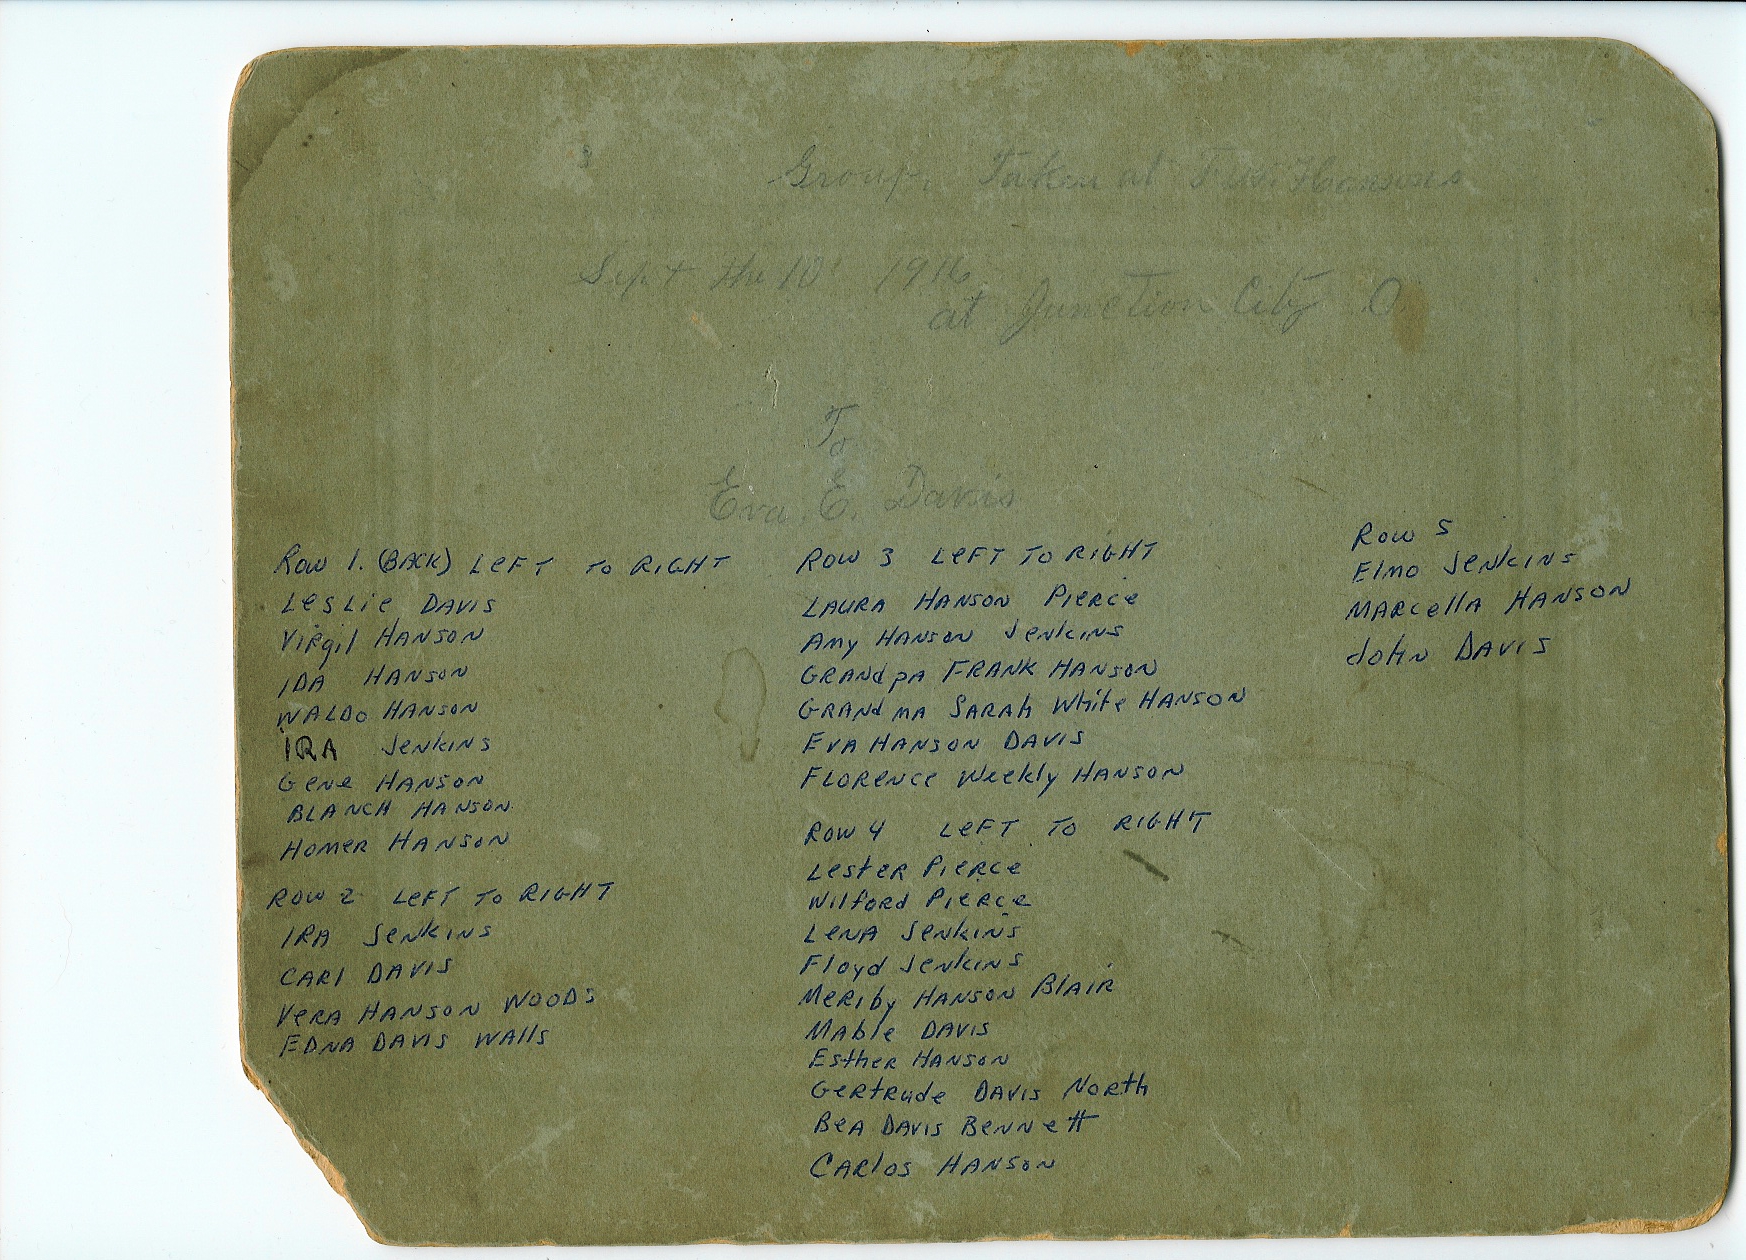 Group. Taken at Hansons
Sept the 10' 1916
at Junction City O.
To
Eva. E. Davis
Row 1. (BACK) LeFT To RiGHT
LesLie DAVIS
VIRgil HANSON
IDA HANSON
WALDo HANSON
IRA JeNkINS
GeNe HANSON
BLANCH HANSON
HomeR HANSON
Row 2 LeFT To RIGHT
IRA JeNkINS
CARl DAVIS
VeRA HANSON WOODS
EDNA DAVIS WAllS
Row 3 LeFT To RIGHT
LAURA HANSON PIeRce
Amy HANSON JeNkINS
GRANdpA FRANK HANSON
GRANdmA SARAh White HANSON
EVA HANSON DAVIS
FLOReNce Weekly HANSON
Row 4 LeFT To RIGHT
LesteR PIeRce
WilfoRd PIeRce
LeNA JeNkINS
Floyd JeNkINS
MeRIby HANSON BlAIR
MAble DAVIS
EstheR HANSON
GeRtRude DAVIS NoRth
BeA DAVIS BeNNett
CARlos HANSON
Row 5
Elmo JeNkINS
MARcellA HANSON
JohN DAVIS